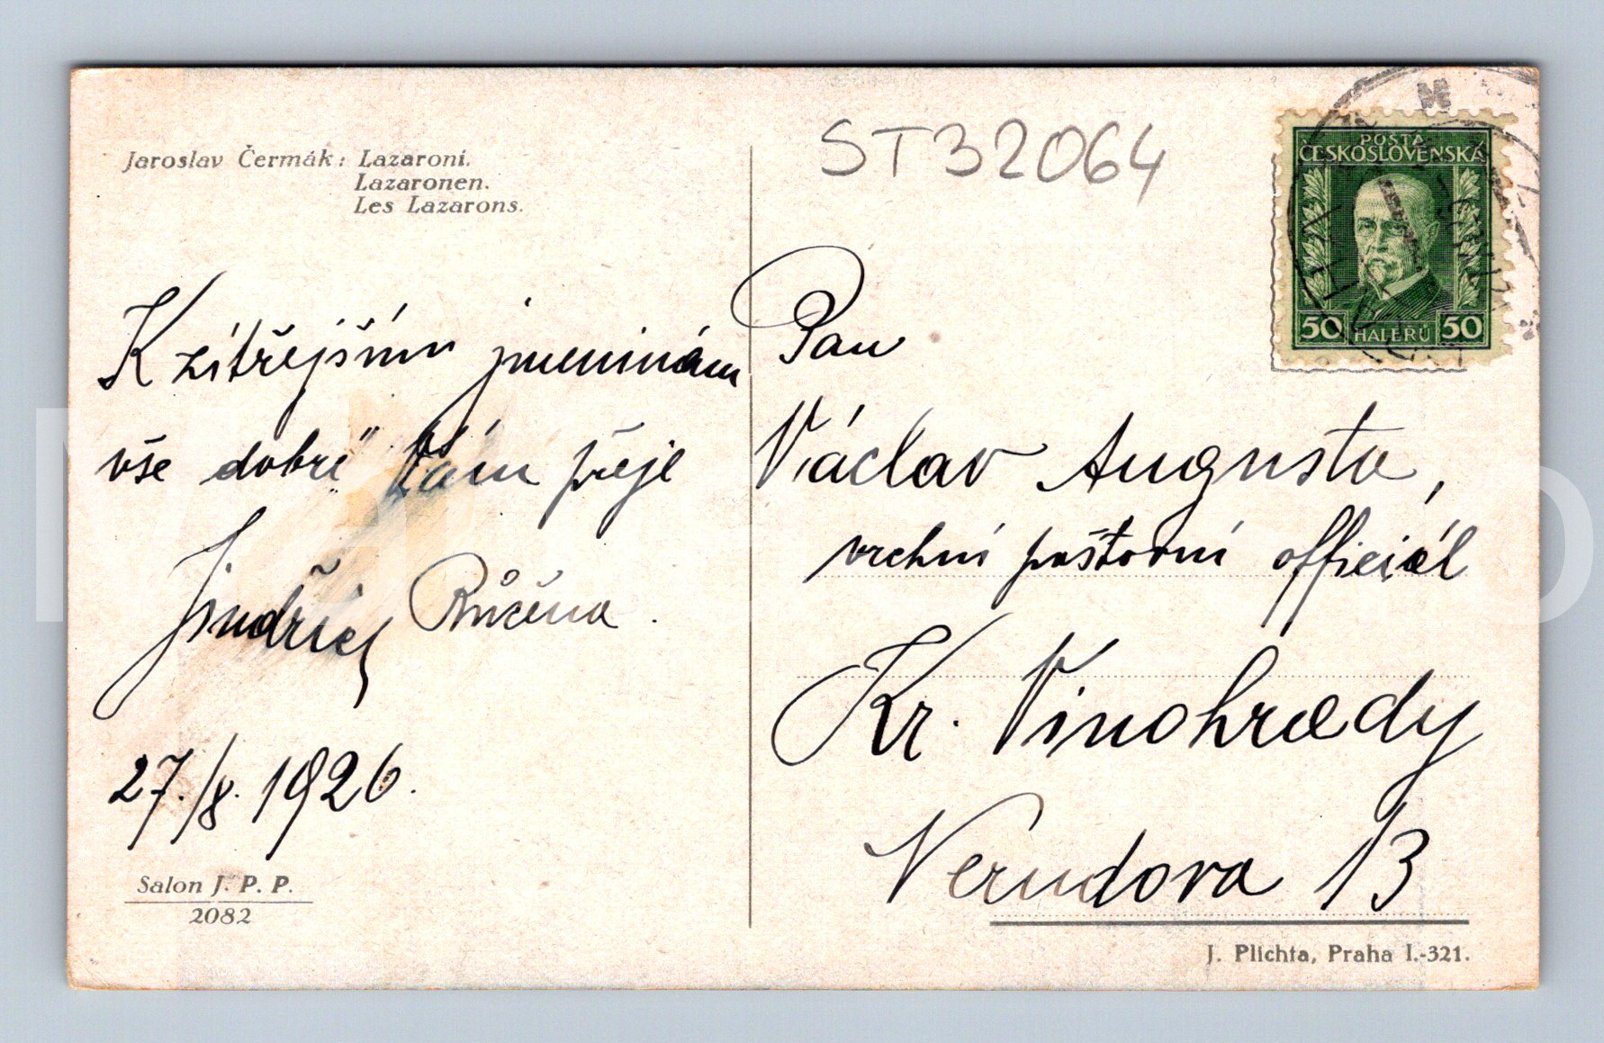 Jaroslav Čermák: Lazaroni.
Lazaronen.
Les Lazarons.
K zítřejším jmeninám
vše dobré Vám přeje
Jindřich Růžena.
27./8. 1926.
Salon J. P. P.
2082
ST32064
POŠTA
ČESKOSLOVENSKÁ
50 HALÉŘŮ 50
Pan
Václav Augusta,
vrchní poštovní officiál
Kr. Vinohrady
Nerudova 13
J. Plichta, Praha I.-321.